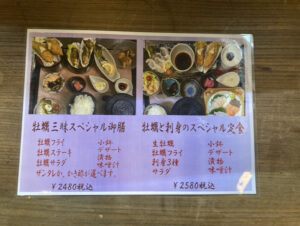 牡蠣三昧スペシャル御膳
牡蠣フライ 小鉢
牡蠣ステーキ デザート
牡蠣サラダ 漬物
味噌汁
サンタレか、かき酢が選べます。
¥2480税込
牡蠣と刺身のスペシャル定食
生牡蠣 小鉢
牡蠣フライ デザート
刺身3種 漬物
サラダ 味噌汁
¥2580税込